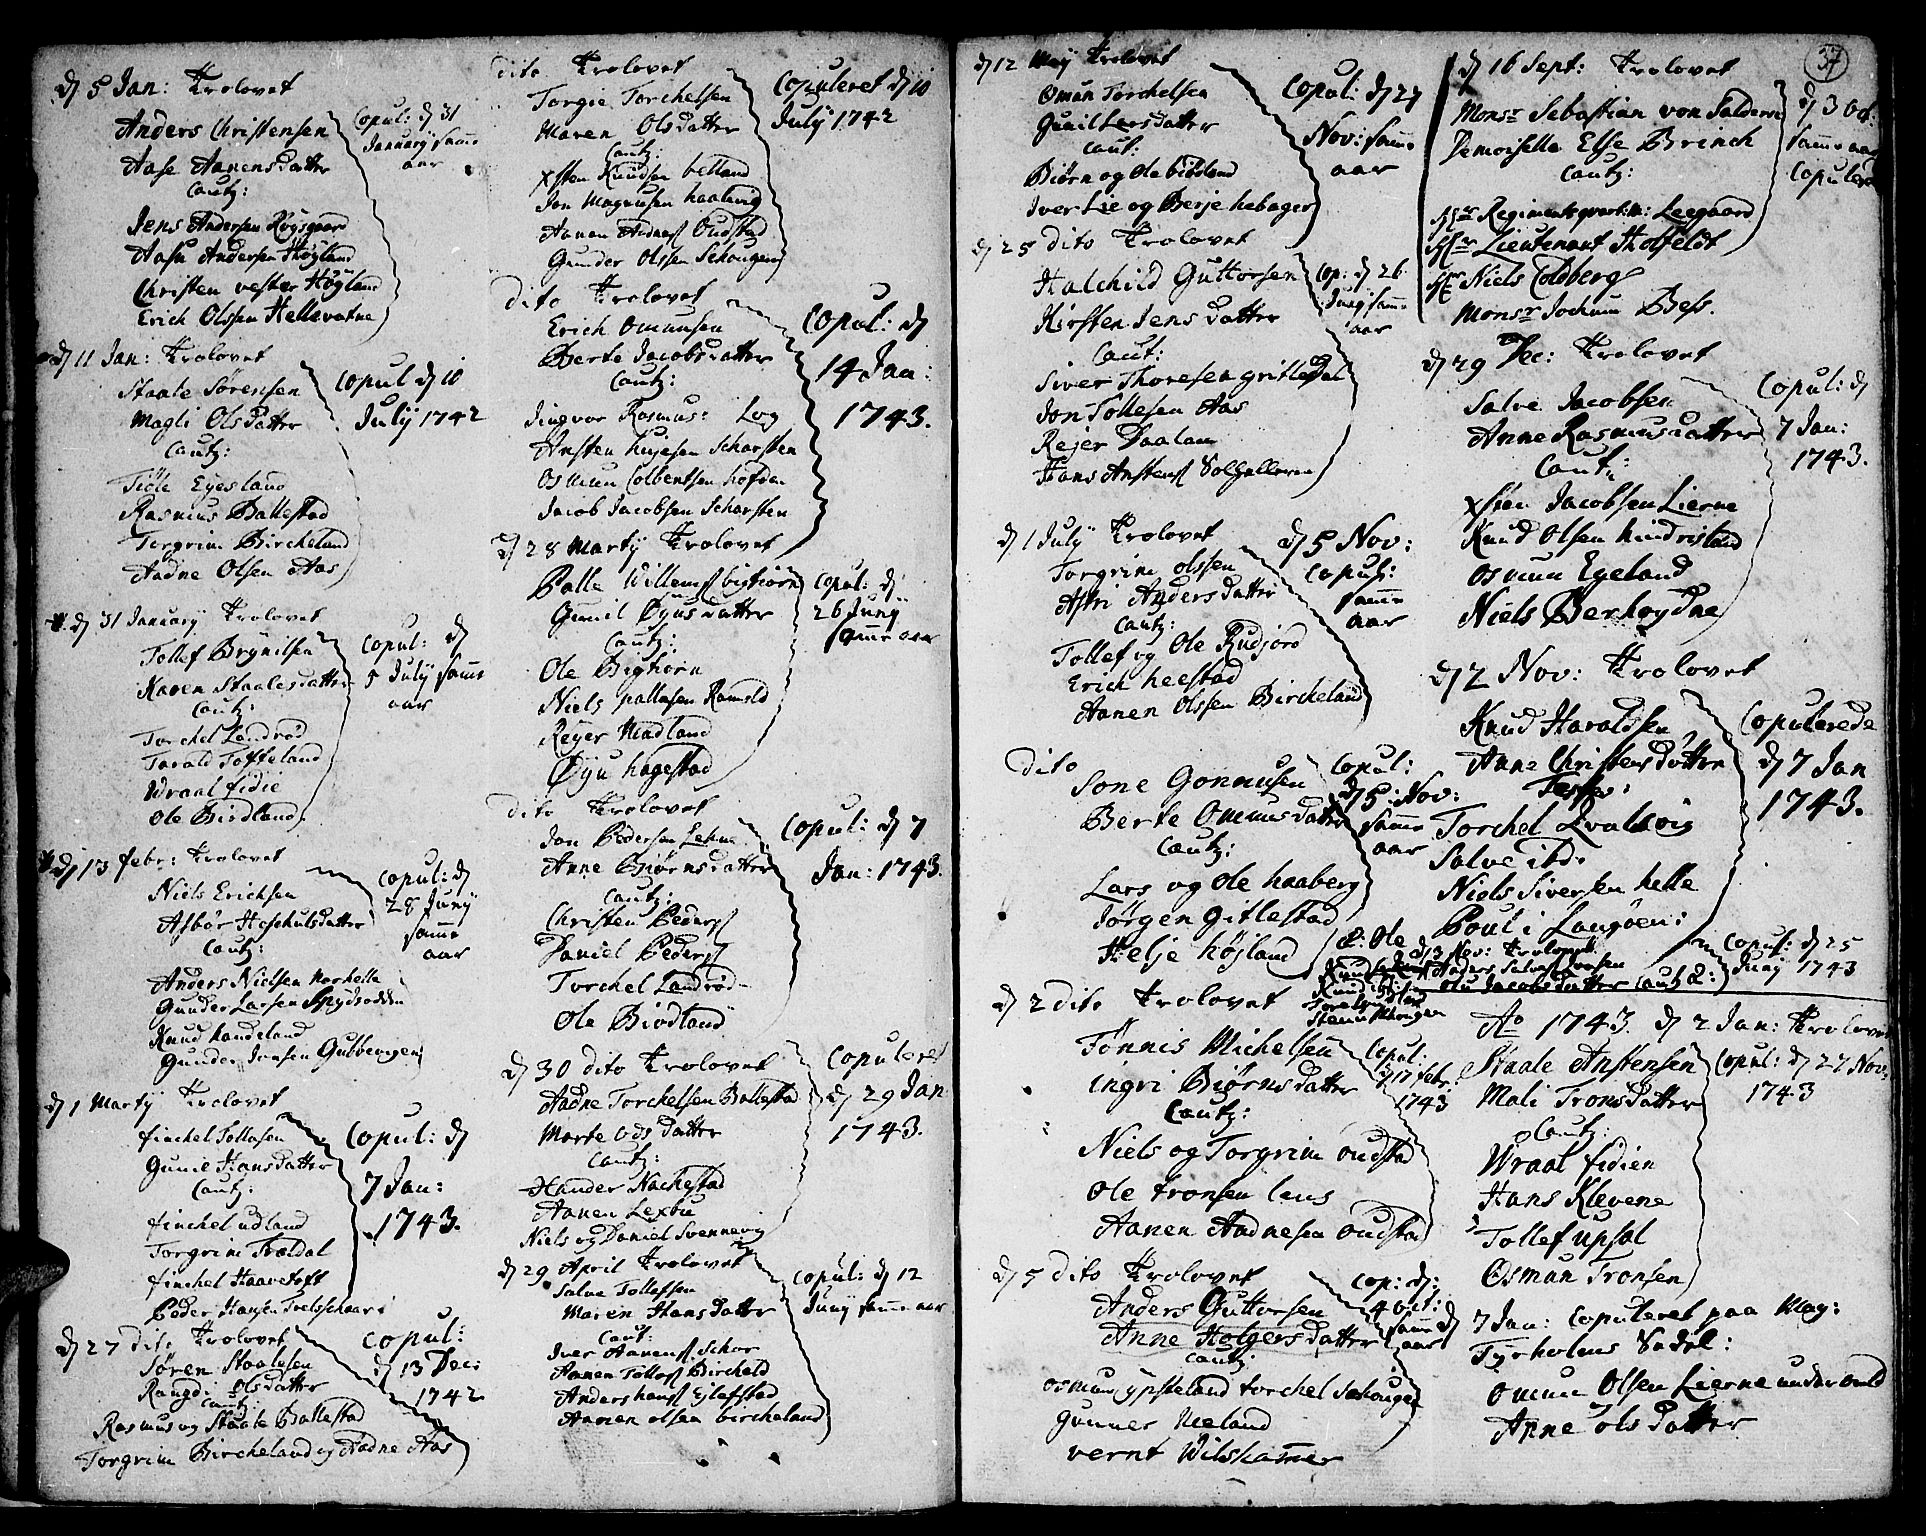 d 5 Jan: Trolovet
Anders Christensen
Aase Aanensdatter
Cautz:
Jens Andersen Røgsgaard
Aasu Andersen Høyland
Christen vester Høyland
Erich Olssen Hellevatne
Copul: d 31
January samme
aar
d 11 Jan: Trolovet
Staale Sørensen
Magli Olsdatter
Cautz:
Tiøle Eyesland
Rasmus Ballestad
Torgrim Bircheland
Aadne Olsen Aas
Copul d 10
July 1742
d 31 January Trolovet
Tollef Brynilsen
Karen Staalesdatter
Cautz:
Torchel Landrød
Tarald Toffteland
Wraal fidie
Ole Birdland
Copul: d
5 July samme
aar
d 13 febr: Trolovet
Niels Erichsen
Asbør Heschulsdatter
Cautz:
Anders Nielsen Norhelle
Gunder Larsen Spydsodden
Knud handeland
Gunder Jensen Gulbergen
Copul: d
28 Juny
samme
aar
d 1 Marty Trolovet
finchel Tollesen
Gunil Hansdatter
Cautz:
finchel udland
Torgrim Trældal
finchel Haavetoft
Peder Hansen Troelsschaar
Copul: d
7 Jan:
1743.
d 27 dito Trolovet
Søren Staalesen
Rangdi Olsdatter
Cautz:
Rasmus og Staale Ballestad
Torgrim Bircheland og Aadne Aas
Copul:
d 13 Dec:
1742
dito Trolovet
Torgie Torchelsen
Maren Olsdatter
Cautz:
xsten Knudsen betland
Jon Magnusen haalmig
Aanen Aadness Oudstad
Gunder Olssen Schougen
Copuleret d 10
July 1742
dito Trolovet
Erich Omunsen
Berte Jacobsdatter
Cautz:
Jingvor Rasmus: Log
Ansten hujesen Scharsten
Osmun Colbentsen hofden
Jacob Jacobsen Scharsten
Copul: d
14 Jan:
1743.
d 28 Marty Trolovet
Palle Willemss bigtiørn
Gunil Øyusdatter
Cautz:
Ole Bigtiørn
Niels pallesen Ramsld
Reyer Madland
Øyu hagestad
Copul: d
26 Juny
samme aar
dito Trolovet
Jon Pedersen Lehne
Anne Biørnsdatter
Cautz:
Christen Pederss
Daniel Pederss
Torchel Landrød
Ole Birdland
Copul: d 7
Jan: 1743.
d 30 dito Trolovet
Aadne Torchelsen Ballestad
Marte Odsdatter
Cautz:
Hander Nachestad
Aanen Lexbu
Niels og Daniel Svennevig
Copuleret
d 29 Jan
1743.
d 29 April Trolovet
Salve Tollefsen
Maren Hansdatter
Caut:
Iver Aanenss Schor
Aanen Tolless Bircheld
Anders hanss Ejlefstad
Aanen olsen bircheland
Copul: d 12
Juny samme aar
37
d 12 May Trolovet
Omun Torchelsen
Gunil Larsdatter
Caut:
Biørn og Ole biørdland
Iver Lie og Berje hebager
Copul: d 27
Nov: samme
aar
d 25 dito Trolovet
Halchild Guttorsen
Kirsten Jensdatter
Caut:
Siver Thoresen gritledal
Jon Tollesen Aas
Rejer Daalan
Hans Anstenss Solhelleren
Cop: d 26
Juny samme
aar
d 1 July Trolovet
Torgrim olssen
Astri Andersdatter
Cautz:
Tollef og Ole Rudjord
Erich heestad
Aanen Olssen Bircheland
d 5 Nov:
Copul:
samme
aar
dito
Sone Gonnusen
Berte Ommunsdatter
Cautz:
Lars og Ole haaberg
Jørgen Gitlestad
Helje højland
Copul:
d 5: Nov:
samme
aar
d 2 dito Trolovet
Tønnis Michelsen
Ingri Biørnsdatter
Cautz:
Niels og Torgrim oudstad
Ole tronsen lens
Aanen Aadnesen oudstad
Copul:
d 17 febr:
1743
d 5 dito Trolovet
Anders Guttorsen
Anne Holgersdatter
Cautz:
Osmun Ypsteland torchel Schougen
Gunner Meland
vernt Wilskammer
Cop: d:
4 Oct:
samme
aar
d 16 Sept: Trolovet
Monsr Sebastian von Salderen
Demoiselle Else Brinch
Cautz:
Hr Regimentsqvartm: Leegaard
Hr Lieutenant Holfeldt
Hr Niels Coldberg
Monsr Jochum Bess.
d 3 Oct:
samme aar
Copuleret
d 29 Dec: Trolovet
Salve Jacobsen
Anne Rasmusdatter
Caut:
xsten Jacobsen Lierne
Knud Olsen hindrisland
Osmun Egeland
Niels Berhoydne
Copul: d
7 Jan:
1743.
d 2 Nov: Trolovet
Knud Haraldsen
Anne Christensdatter
Torchel Qvalløig
Salve ibd.
Niels Siversen helle
Poul i Langøen:
Copulerede
d 7 Jan
1743.
d 3 Nov: Trolovet
Anders Salves Iversen
Jacobsdatter Cautz:
Copul: d 25
Juny 1743
Ao 1743. d 2 Jan: Trolovet
Staale Anstensen
Mali Tronsdatter
Cautz:
Wraal fidien
Hans Klevene
Tollef upsal
Osman Tronsen
Copul: d 27 Nov:
1743
d 7 Jan: Copuleret paa May:
Tyrholms Sadel:
Omun Olsen Lierne under ould
Anne Olsdatter